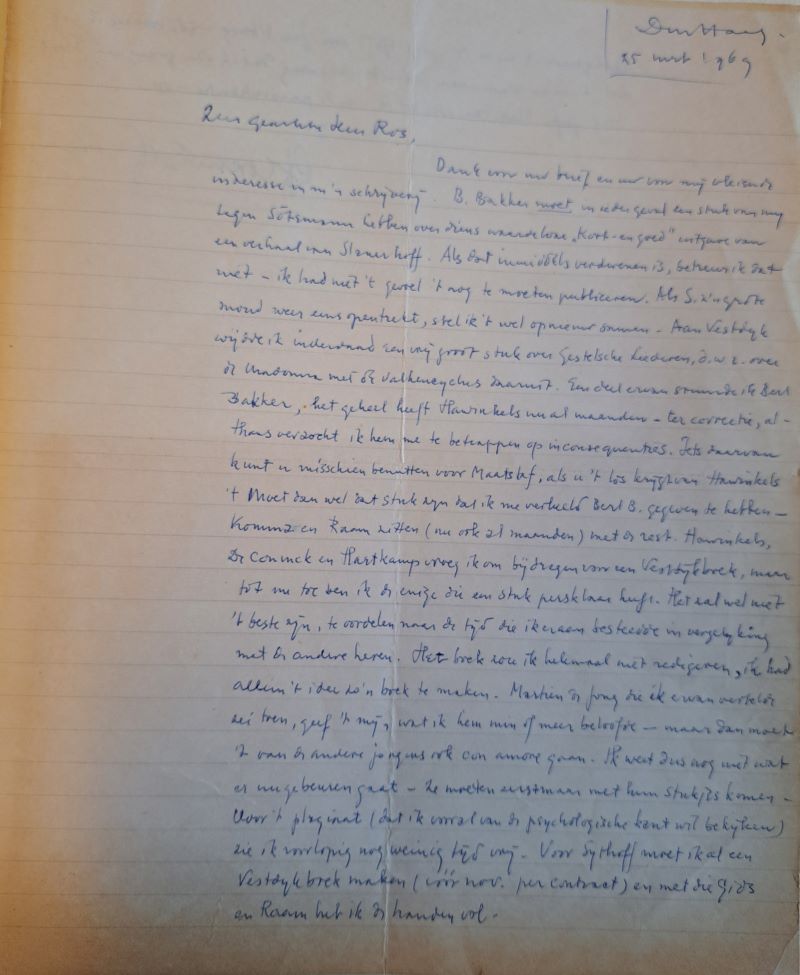 Den Haag.
25 mrt 1969
Zeer geachte heer Ros,
Dank voor uw brief en uw voor mij vleiende
interesse in m'n schrijverij. B. Bakker moet in ieder geval een stuk van mij
tegen Sötemann hebben over diens waardeloze „Kort- en goed" uitgave van
een verhaal van Slauerhoff. Als dat inmiddels verdwenen is, betreur ik dat
niet – ik had niet 't gevoel 't nog te moeten publiceren. Als S. z'n grote
mond weer eens opentrekt, stel ik 't wel opnieuw samen – Aan Vestdijk
wijdde ik inderdaad een vrij groot stuk over Gestelsche Liederen, d.w.z. over
de Madonna met de Valkencyclus daaruit. Een deel ervan stuurde ik Bert
Bakker, het geheel heeft Hawinkels nu al maanden – ter correctie, al-
thans verzocht ik hem me te betrappen op inconsequenties. Iets daarvan
kunt u misschien benutten voor Maatstaf, als u 't los krijgt van Hawinkels
't Moet dan wel dat stuk zijn dat ik me verbeeld Bert B. gegeven te hebben –
Komma en Raam zitten (nu ook al maanden) met de rest. Hawinkels,
De Coninck en Hartkamp vroeg ik om bijdragen voor een Vestdijkboek, maar
tot nu toe ben ik de enige die een stuk persklaar heeft. Het zal wel niet
't beste zijn, te oordelen naar de tijd die ik eraan besteedde in vergelijking
met de andere heren. Het boek zou ik helemaal niet redigeren, ik had
alleen 't idee zo'n boek te maken. Martien de Jong die ik ervan vertelde
zei toen, geef 't mij, wat ik hem min of meer beloofde – maar dan moet
't van de andere jongens ook con amore gaan. Ik weet dus nog niet wat
er nu gebeuren gaat – ze moeten eerst maar met hun stukjes komen –
Voor 't plagiaat (dat ik vooral van de psychologische kant wil bekijken)
zie ik voorlopig nog weinig tijd vrij. Voor Sijthoff moet ik al een
Vestdijkboek maken (vóór nov. per contract) en met die Gids
en Raam heb ik de handen vol –